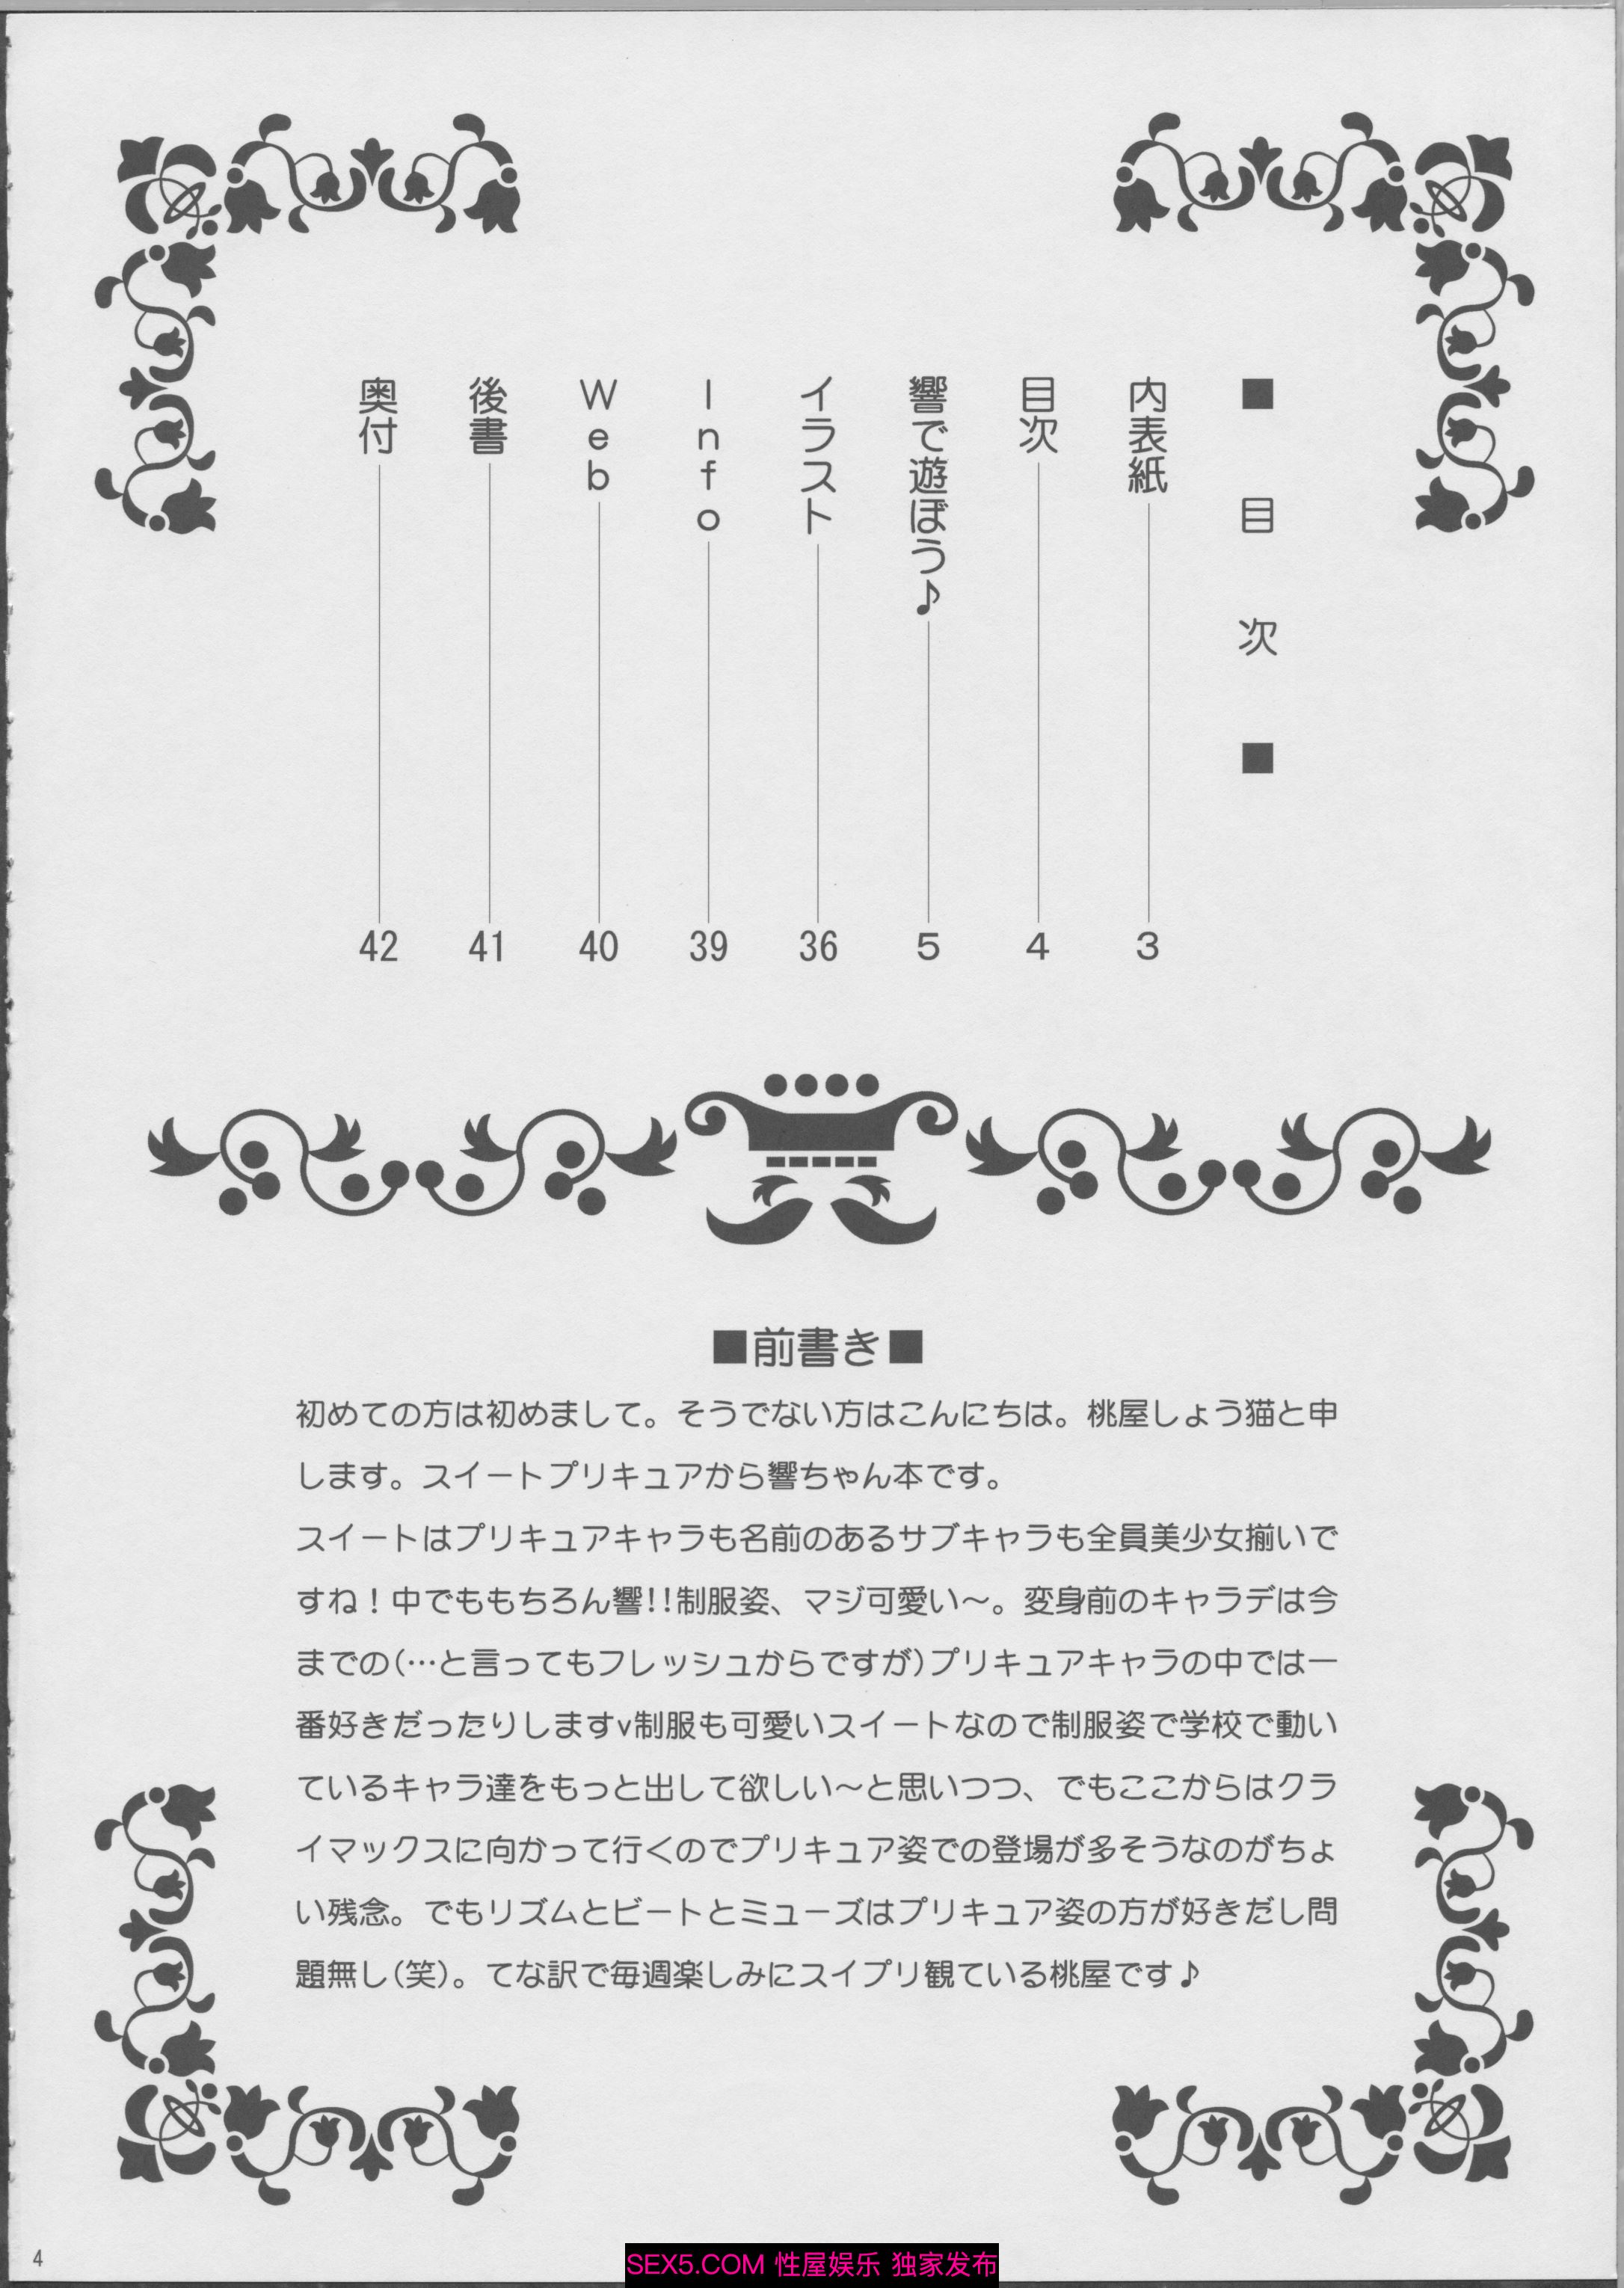 ■ 目 次 ■
内表紙 3
目次 4
響で遊ぼう♪ 5
イラスト 36
Info 39
Web 40
後書 41
奥付 42
■前書き■
初めての方は初めまして。そうでない方はこんにちは。桃屋しょう猫と申
します。スイートプリキュアから響ちゃん本です。
スイートはプリキュアキャラも名前のあるサブキャラも全員美少女揃いで
すね！中でももちろん響!!制服姿、マジ可愛い～。変身前のキャラデは今
までの(…と言ってもフレッシュからですが)プリキュアキャラの中では一
番好きだったりしますv制服も可愛いスイートなので制服姿で学校で動い
ているキャラ達をもっと出して欲しい～と思いつつ、でもここからはクラ
イマックスに向かって行くのでプリキュア姿での登場が多そうなのがちょ
い残念。でもリズムとビートとミューズはプリキュア姿の方が好きだし問
題無し(笑)。てな訳で毎週楽しみにスイプリ観ている桃屋です♪
4
SEX5.COM 性屋娱乐 独家发布